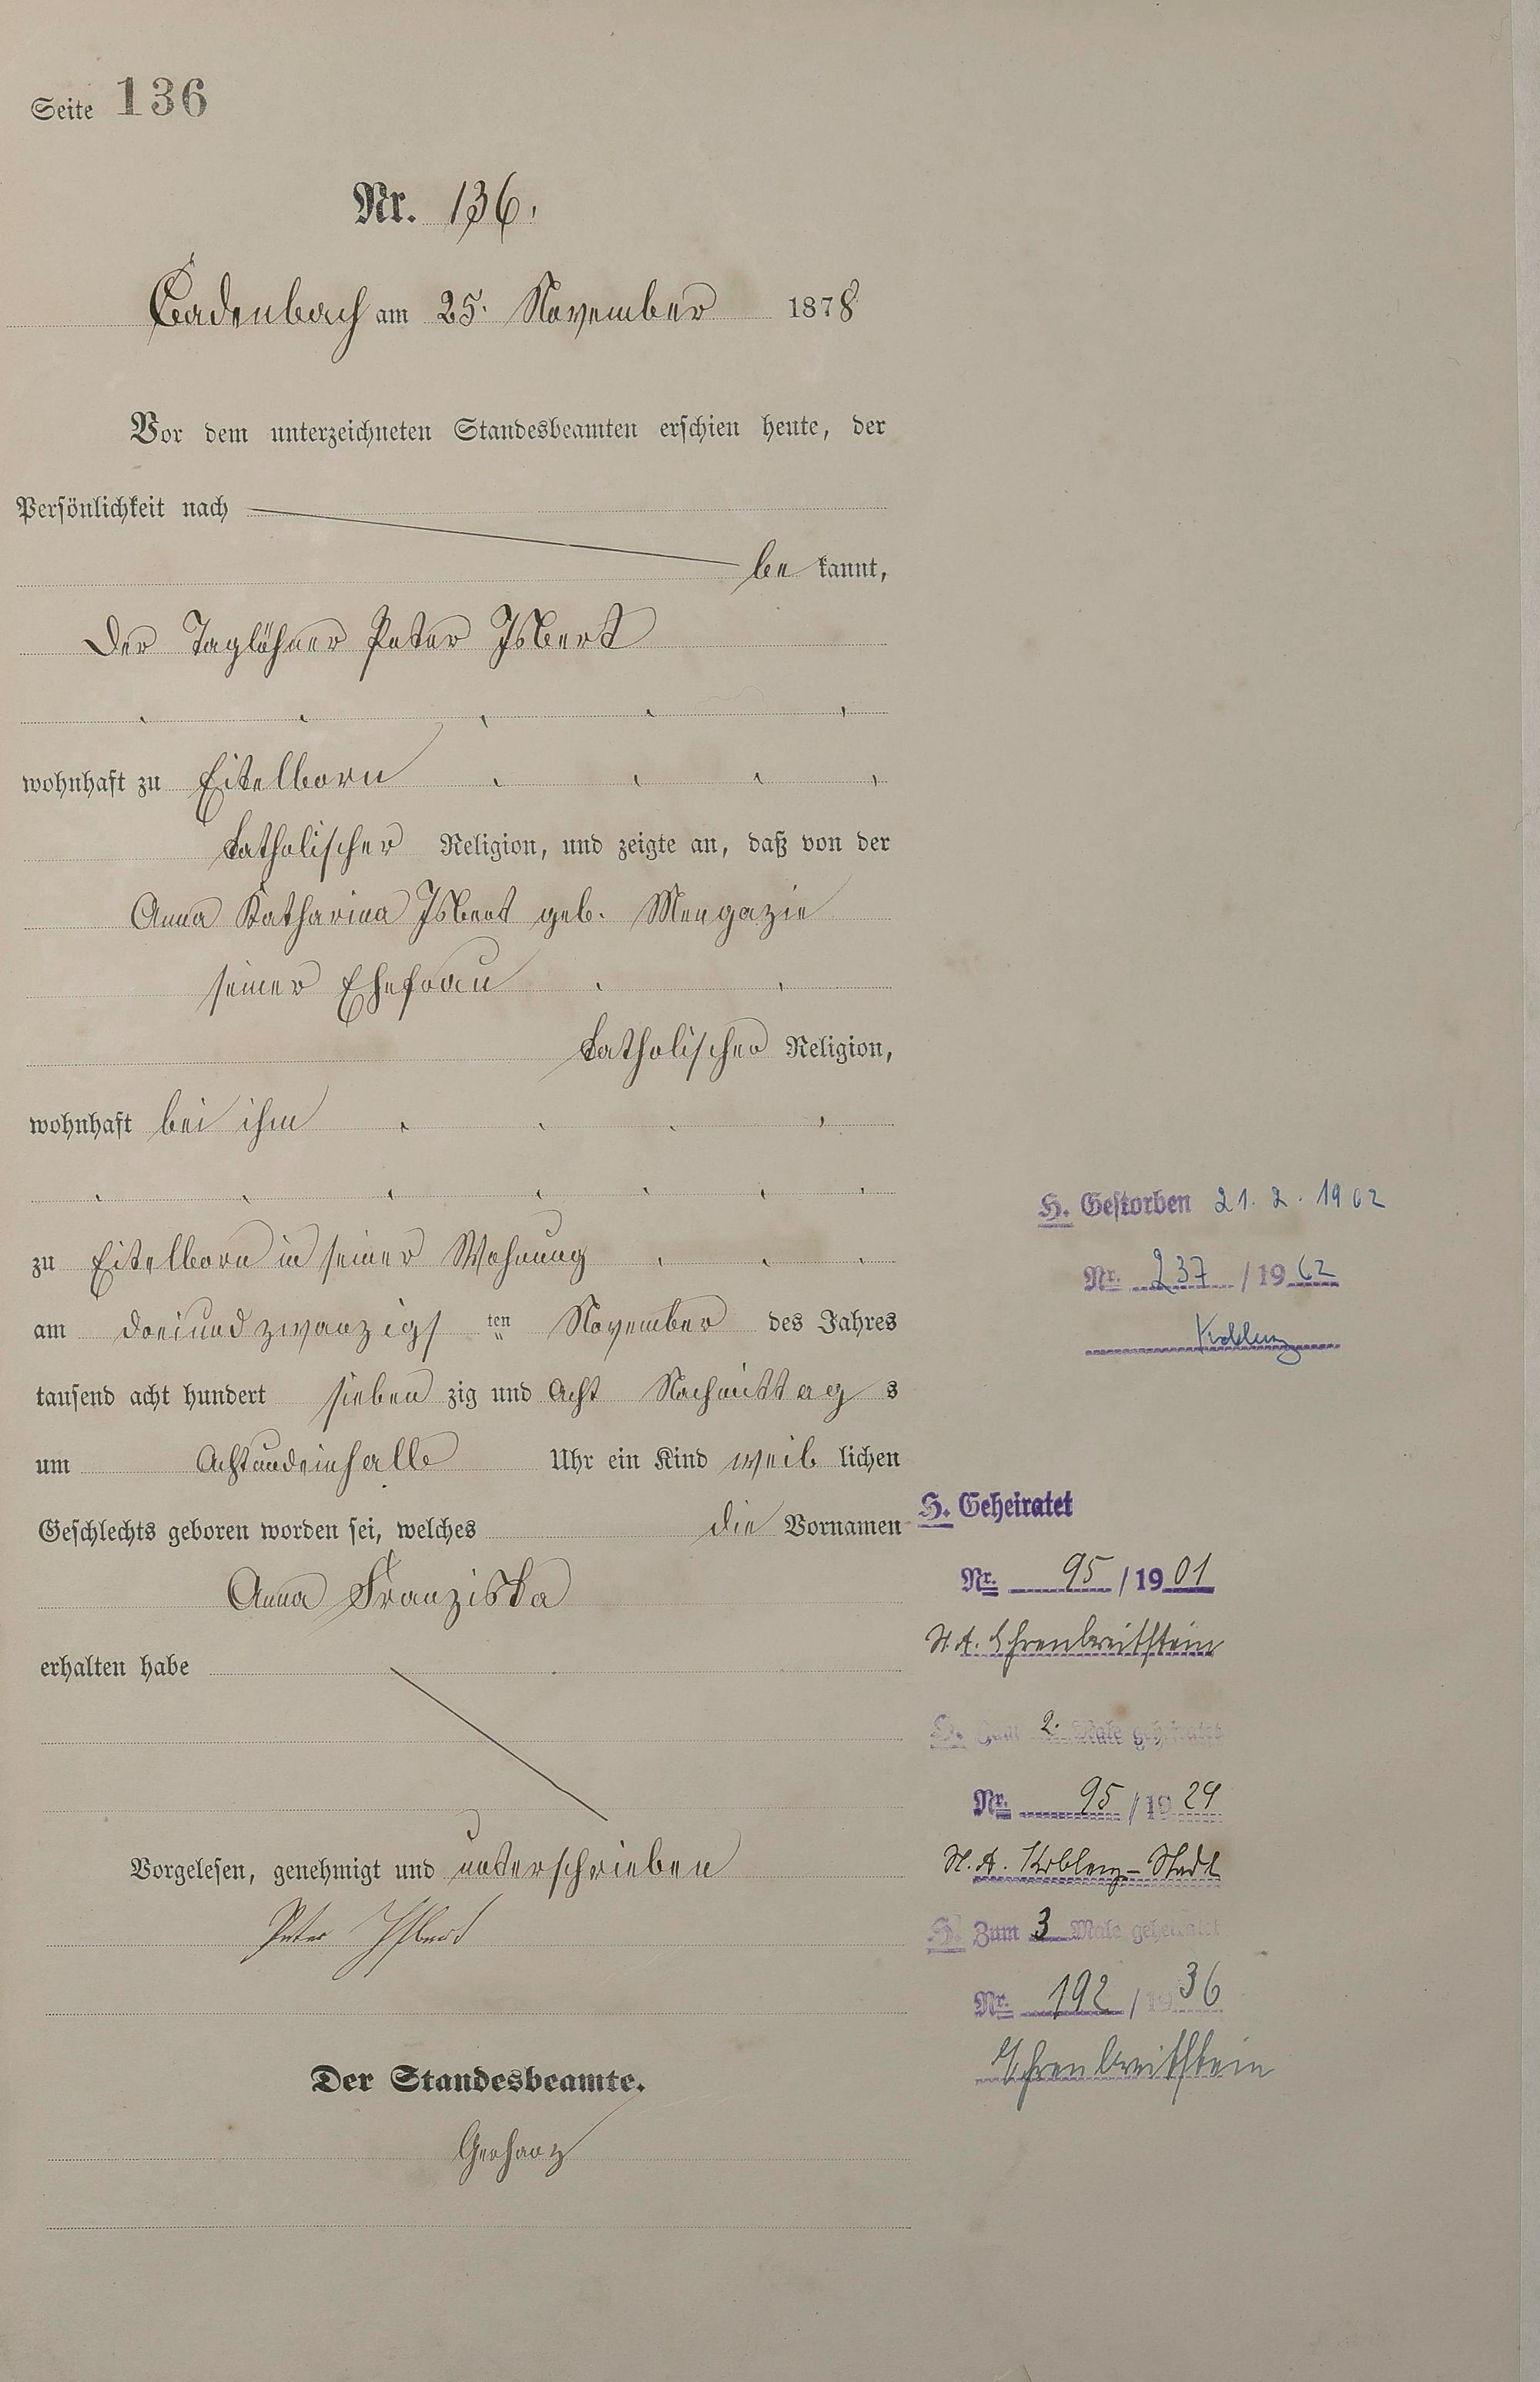 Seite 136
Nr. 136.
Cadenbach am 25. November 1878
Vor dem unterzeichneten Standesbeamten erschien heute, der
Persönlichkeit nach
be kannt,
Der Taglöhner Peter Isbert
wohnhaft zu Eitelborn
katholischer Religion, und zeigte an, daß von der
Anna Katharina Isbert geb. Mengazie
seiner Ehefrau
katholischer Religion,
wohnhaft bei ihm
zu Eitelborn in seiner Wohnung
am dreiundzwanzigs ten November des Jahres
tausend acht hundert sieben zig und Acht Nachmittag s
um Achtundeinhalb Uhr ein Kind weib lichen
Geschlechts geboren worden sei, welches die Vornamen
Anna Franziska
erhalten habe
Vorgelesen, genehmigt und unterschrieben
Peter Isbert
Der Standesbeamte.
Gerharz
H. Gestorben 21. 2. 1962
Nr. 237 / 19 62
Koblenz
H. Geheiratet
Nr. 95 / 19 01
St. A. Ehrenbreitstein
H. Zum 2. Male geheiratet
Nr. 95 / 19 29
St. A. Koblenz-Stadt
H. Zum 3 Male geheiratet
Nr. 192 / 19 36
Ehrenbreitstein